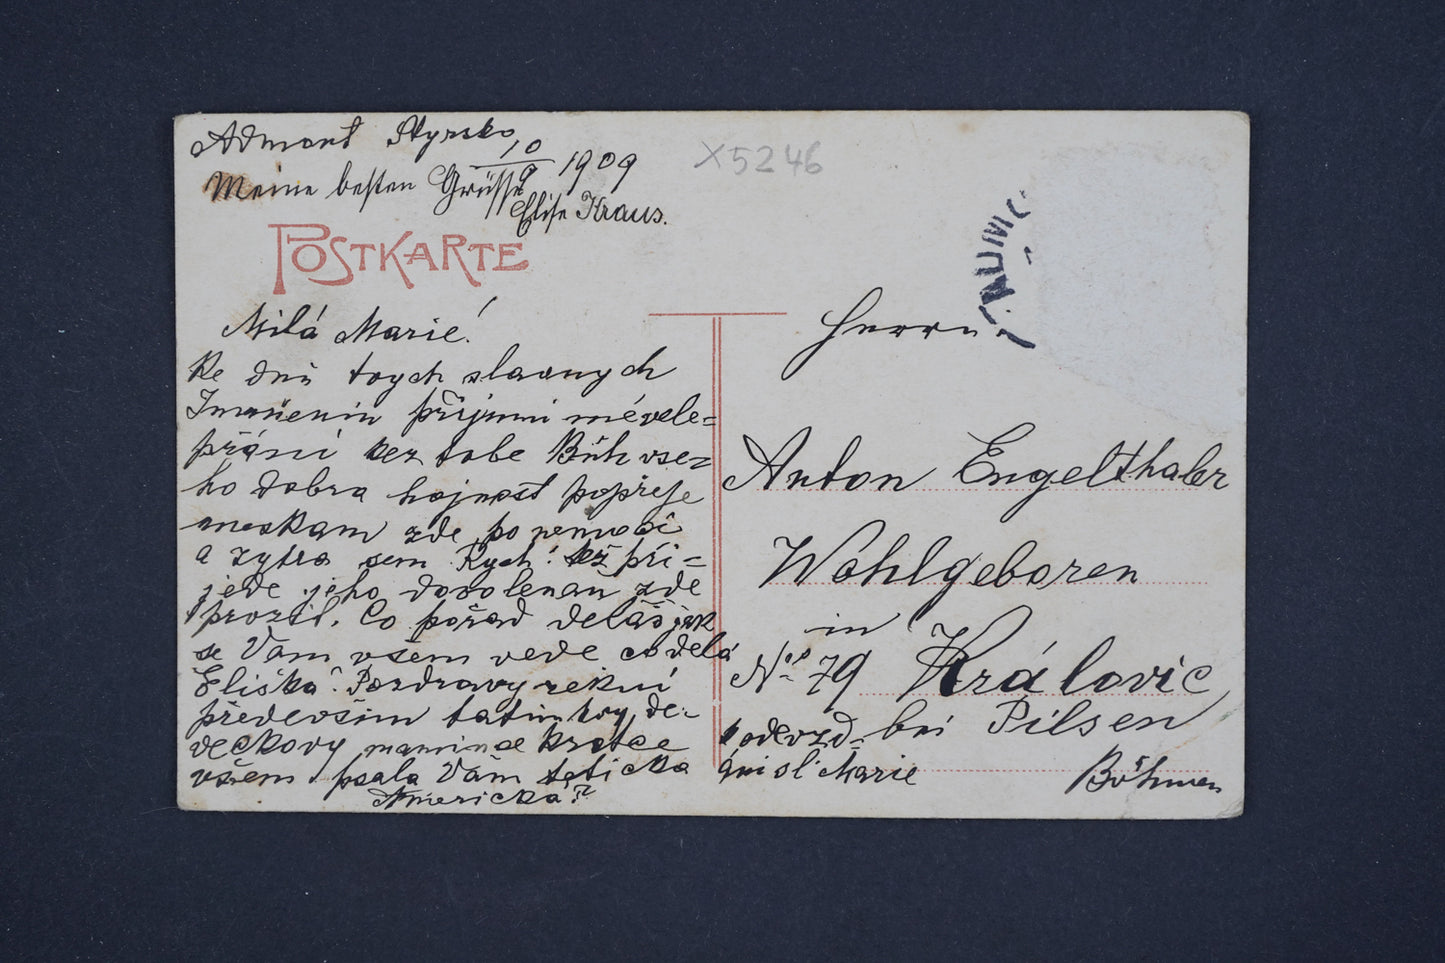 Admont Styrsko
10/9 1909
Meine besten Grüsse
Elise Kraus.
X5246
POSTKARTE
Milá Marie!
Ke dni tvych slavnych
Jmenenin přijmi mé vele=
přání kez tobe Bůh vse=
ho dobra hojnost popřeje
meskam zde po nemoci
a zytra sem Rych: též při=
jede jeho dovolenau zde
prozil. Co pořad delaš jak
se Vam všem vede co dela
Eliška? Pozdravy
předevšim tatinkovy, de=
deckovy mamince
všem psala Vám teticka
Americka?
Herrn
Anton Engelthaler
Wohlgeboren
in
No 79 Královic
bei Pilsen
Böhmen
odevzd=
ání sl: Marie